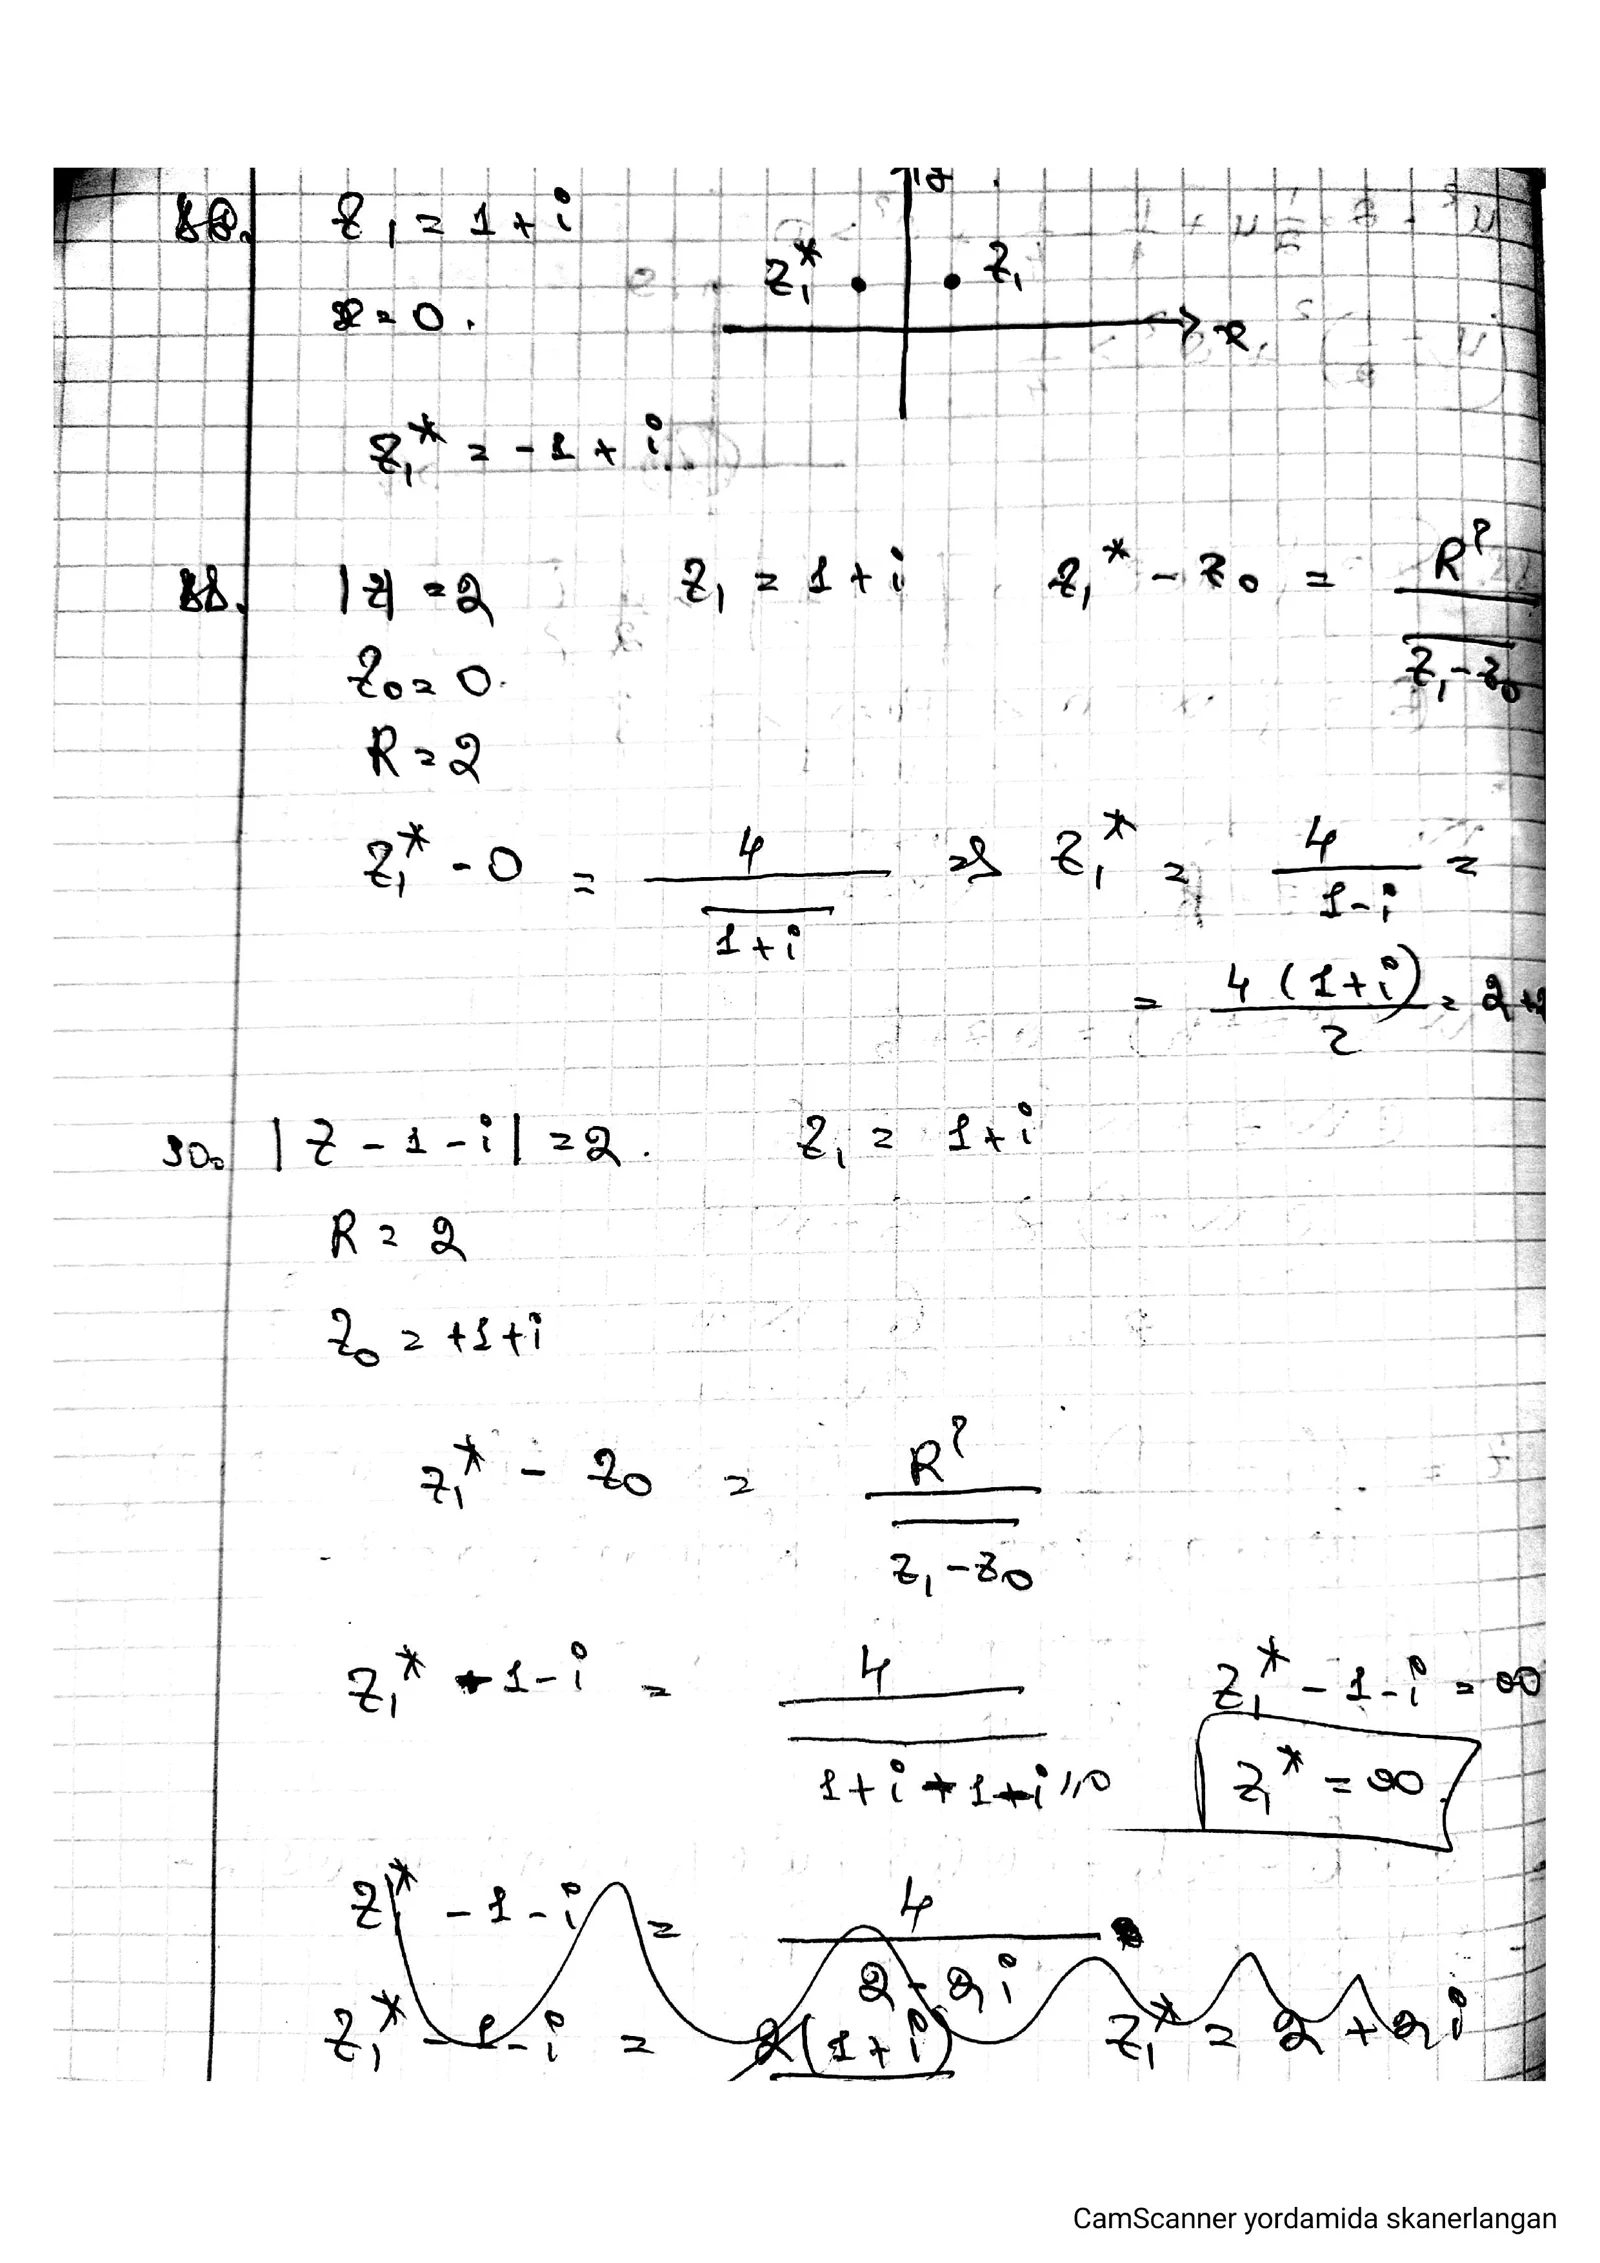 z₁ = 1 + i
y
z₁* z₁
x = 0.
x
z₁* = -1 + i
|z| = 2 z₁ = 1 + i z₁* - z₀ = R² / \overline{z₁ - z₀}
z₀ = 0
R = 2
z₁* - 0 = 4 / \overline{1 + i} ⇒ z₁* = 4 / (1 - i) =
= 4 (1 + i) / 2 = 2 +
30. |z - 1 - i| = 2. z₁ = 1 + i
R = 2
z₀ = +1 + i
z₁* - z₀ = R² / \overline{z₁ - z₀}
z₁* - 1 - i = 4 / \overline{1 + i - 1 - i} = 0 z₁* - 1 - i = ∞
z₁* = ∞
z₁* - 1 - i = 4 / (2 - 2i)
z₁* - 1 - i = 2(1 + i) z₁* = 2 + 2i
CamScanner yordamida skanerlangan